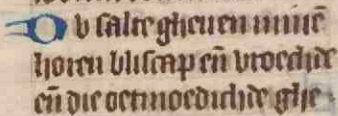 Du salte gheuen minē
horen bliscap eñ vroechde
eñ die oetmoedichde ghe